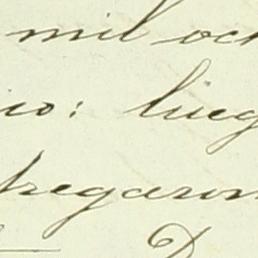 mil och
ico: lueg
tregaron
D